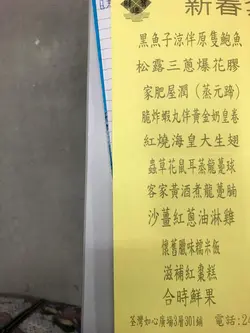 新春
黑魚子涼伴原隻鮑魚
松露三蔥爆花膠
家肥屋潤（蒸元蹄）
脆炸蝦丸伴黃金奶皇卷
紅燒海皇大生翅
蟲草花鼠耳蒸龍躉球
客家黃酒煮龍躉腩
沙薑紅蔥油淋雞
懷舊臘味糯米飯
滋補紅棗糕
合時鮮果
荃灣如心廣場3層301舖 電話:2